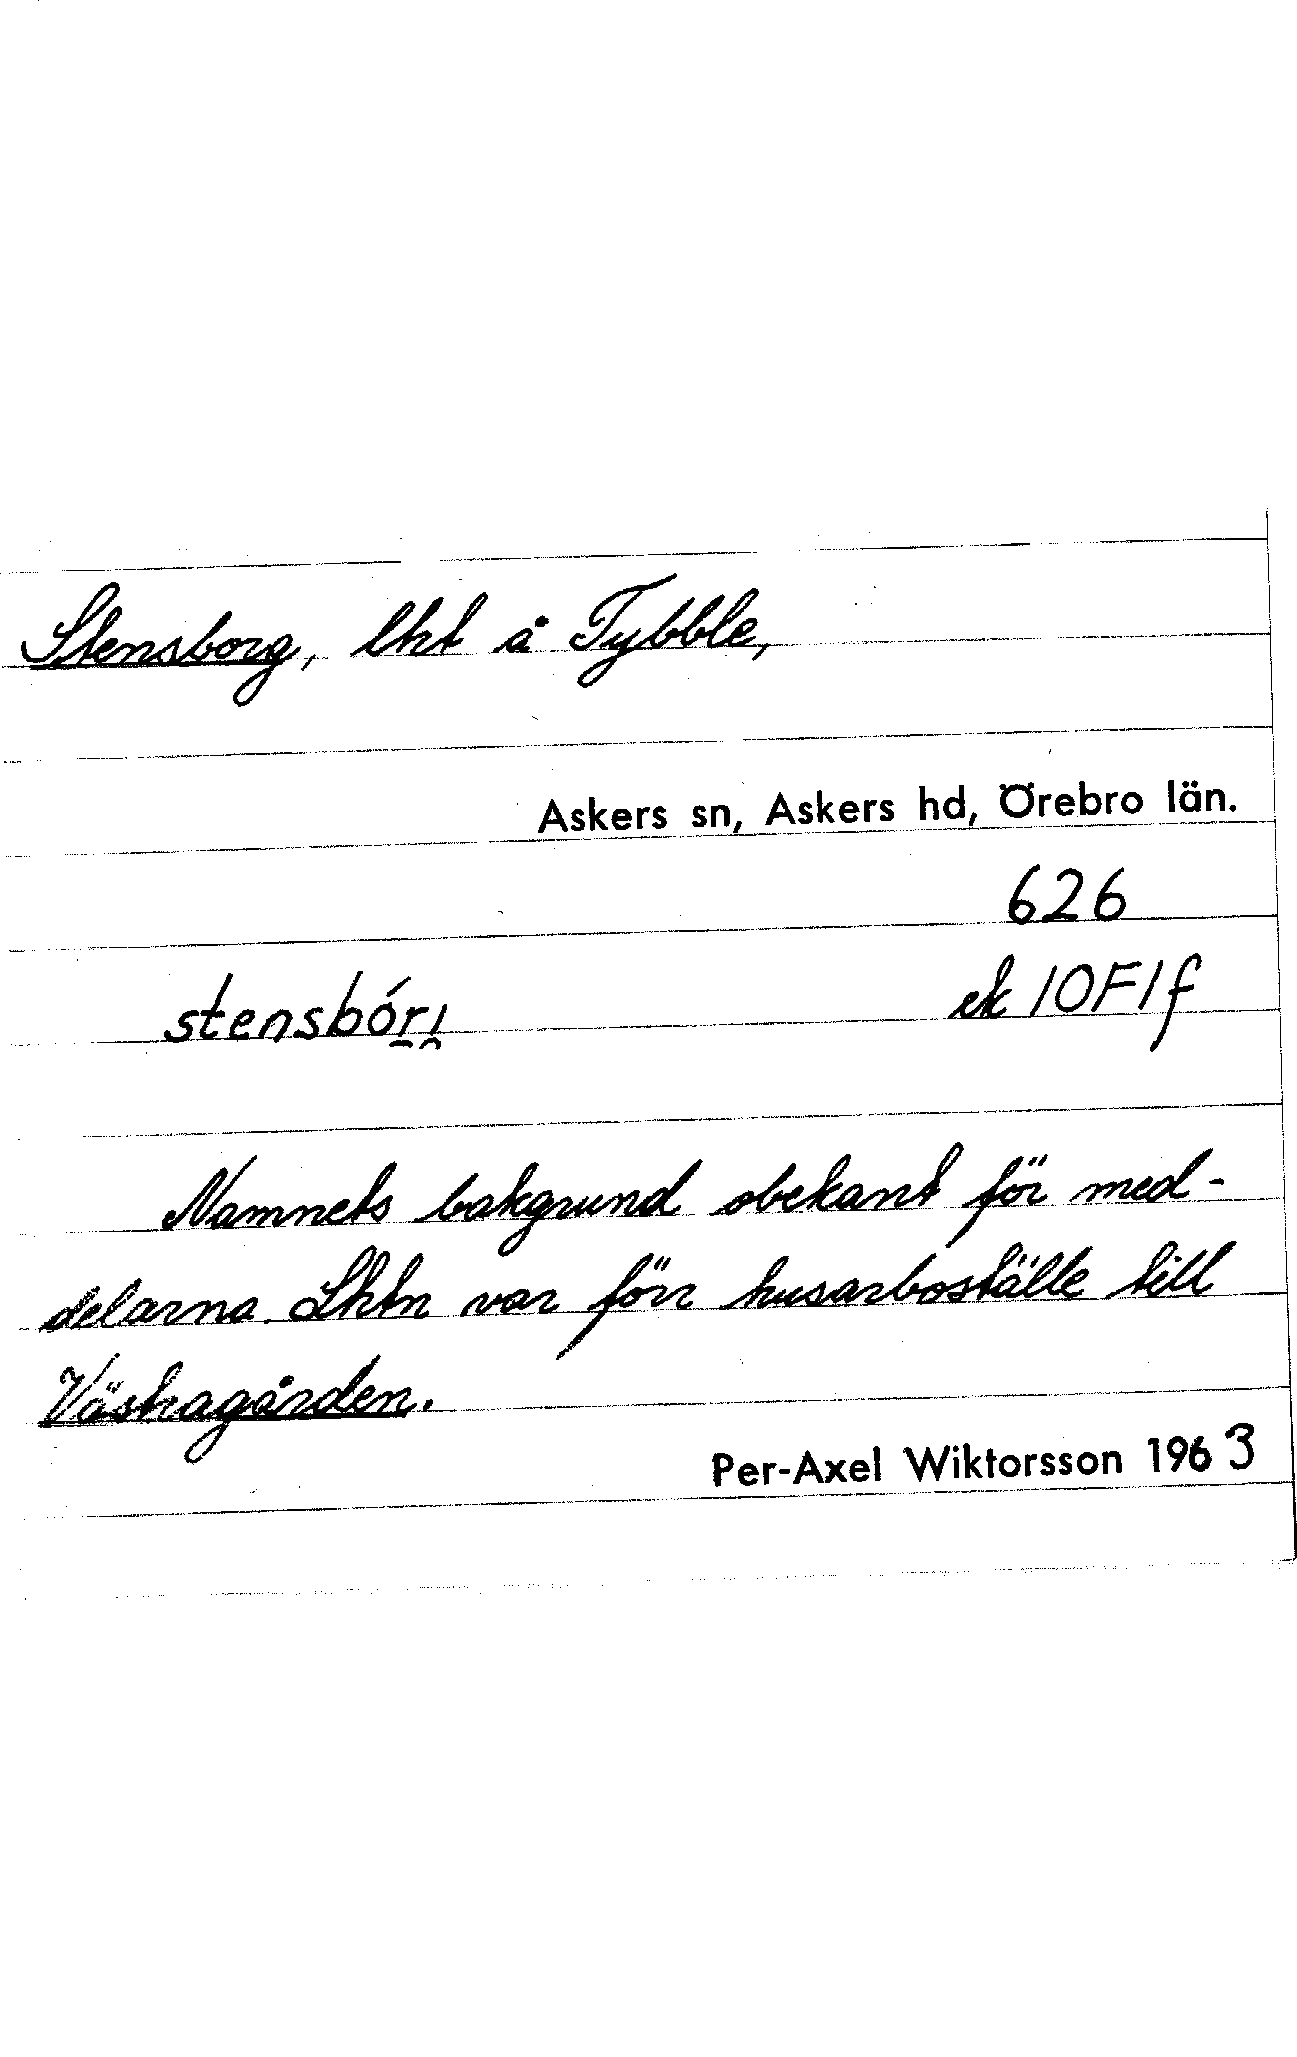 Stensborg, lht å Tybble,
Askers sn, Askers hd, Örebro län.
626
stensbór̠ı̯ ek 10F1f
Namnets bakgrund obekant för med-
delarna. Lhtn var förr husarboställe till
Västragården.
Per-Axel Wiktorsson 1963